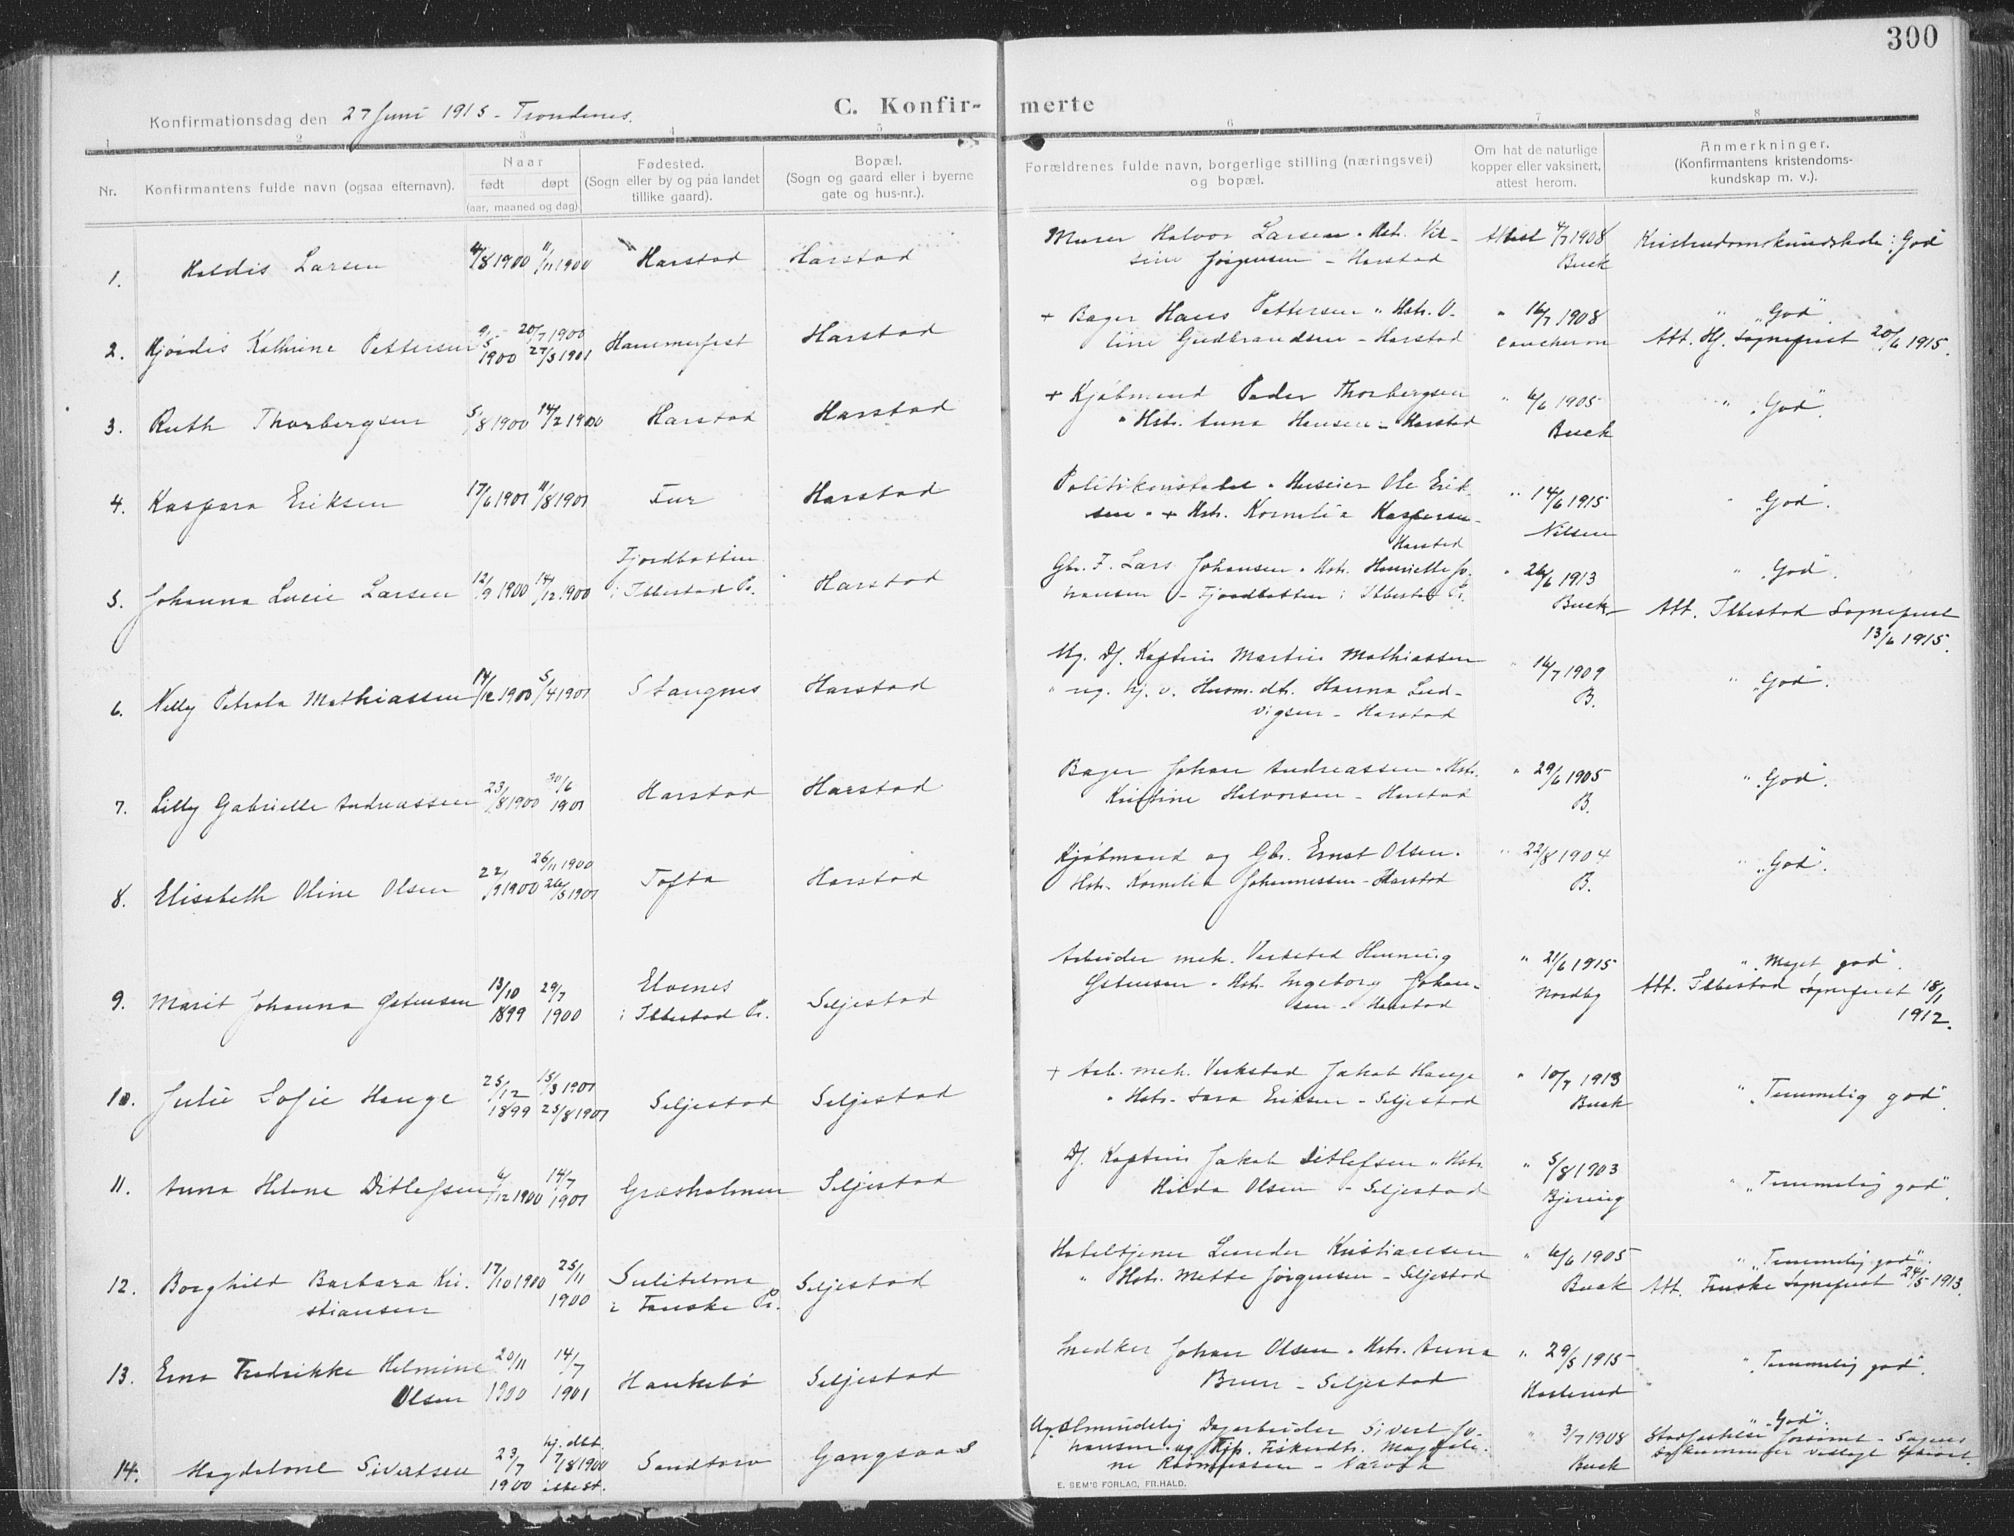 300
Konfirmationsdag den 27 Juni 1915 - Trondenes.
C. Konfir- merte
1 2 3 4 5 6 7 8
Nr.
Konfirmantens fulde navn (ogsaa efternavn).
Naar
født døpt
(aar, maaned og dag).
Fødested.
(Sogn eller by og paa landet
tillike gaard).
Bopæl.
(Sogn og gaard eller i byerne
gate og hus-nr.).
Forældrenes fulde navn, borgerlige stilling (næringsvei)
og bopæl.
Om hat de naturlige
kopper eller vaksinert,
attest herom.
Anmerkninger.
(Konfirmantens kristendoms-
kundskap m. v.).
1. Haldis Larsen 4/8 1900 11/11 1900 Harstad Harstad
Murer Halvor Larsen o. Hstr.
Jørgensen - Harstad
Attest 4/7 1908
Buck
Kristendomskundskab: "God"
2. Hjørdis Kathrine Pettersen 9/5 1900 20/7 1900 27/3 1901 Hammerfest Harstad
+ Bager Hans Pettersen o. Hstr. O-
line Gudbrandsen - Harstad
" 16/7 1908
Caucheron
" "God".
Att. Hf. Sogneprest 20/6 1915.
3. Ruth Thorbergsen 5/8 1900 14/2 1900 Harstad Harstad
+ Kjøbmand Peder Thorbergsen
o. Hstr. Anna Hansen - Harstad
" 6/6 1905
Buck
" "God".
4. Kaspara Eriksen 17/6 1901 11/8 1901 Fur Harstad
Politikonstabel o. Huseier Ole Erik-
sen o. + Hstr. Kornelia Kaspersen -
Harstad
" 14/6 1915
Nilsen
" "God".
5. Johanna Lucie Larsen 12/9 1900 14/12 1900 Fjordbotten
i Ibbestad Pr. Harstad
Gbr. F. Lars Johansen o. Hstr. Henriette Jo-
hansen - Fjordbotten i Ibbestad Pr.
" 26/6 1913
Buck
" "God".
Att. Ibbestad Sogneprest
13/6 1915.
6. Nelly Petrola Mathiassen 14/12 1900 5/4 1901 Stangnes Harstad
Ug. Df. Kaptein Martin Mathiassen
o. ug. hj. v. Husm.dtr. Hanna Lud-
vigsen - Harstad
" 16/7 1909
B.
" "God".
7. Lilly Gabrielle Andreassen 23/8 1900 30/6 1901 Harstad Harstad
Bager Johan Andreassen o. Hstr.
Kristine Halvorsen - Harstad
" 29/6 1905
B.
" "God".
8. Elisabeth Oline Olsen 22/9 1900 26/11 1900 26/5 1901 Tofta Harstad
Kjøbmand og Gbr. Ernst Olsen o.
Hstr. Kornelia Johannessen - Harstad
" 22/8 1904
B.
" "God".
9. Marit Johanna Østensen 13/10 1899 29/7 1900 Elvenes
i Ibbestad Pr. Seljestad
Arbeider mek. Verksted Henning
Østensen o. Hstr. Ingeborg Johan-
sen - Harstad
" 21/6 1915
Nordby
" "Meget god".
Att. Ibbestad Sogneprest 18/1
1912.
10. Julie Sofie Hauge 25/12 1899 15/3 1901 25/8 1901 Seljestad Seljestad
+ Arb. mek. Verksted Jakob Hauge
o. Hstr. Sara Eriksen - Seljestad
" 10/7 1913
Buck
" "Temmelig god".
11. Anna Helene Ditlefsen 6/12 1900 14/7 1901 Græsholmen Seljestad
Df. Kaptein Jakob Ditlefsen o. Hstr.
Hilda Olsen - Seljestad
" 5/8 1903
Bjering
" "Temmelig god".
12. Borghild Barbara Kri-
stiansen 17/10 1900 25/11 1900 Sulitelma
i Fauske Pr. Seljestad
Hoteltjener Kristiansen
o. Hstr. Mette Jørgensen - Seljestad
" 6/6 1905
Buck
" "Temmelig god".
Att. Fauske Sogneprest 24/5 1913.
13. Erna Fredrikke Helmine
Olsen 20/11 1900 14/7 1901 Haukebø Seljestad
Snedker Johan Olsen o. Hstr. Anna
Bruun - Seljestad
" 29/5 1915
" "Temmelig god".
14. Magdelone Sivertsen 23/7 1900 hj. dbt. 17/8 1900 Sandtorv Gangsaas
Ug. Almindelig Dagarbeider Sivert Jo-
hansen og Pige Fiskerdtr. Magdale-
ne Rasmussen - Narvik
" 3/7 1908
Buck
" "God".
E. SEM'S FORLAG, FR.HALD.